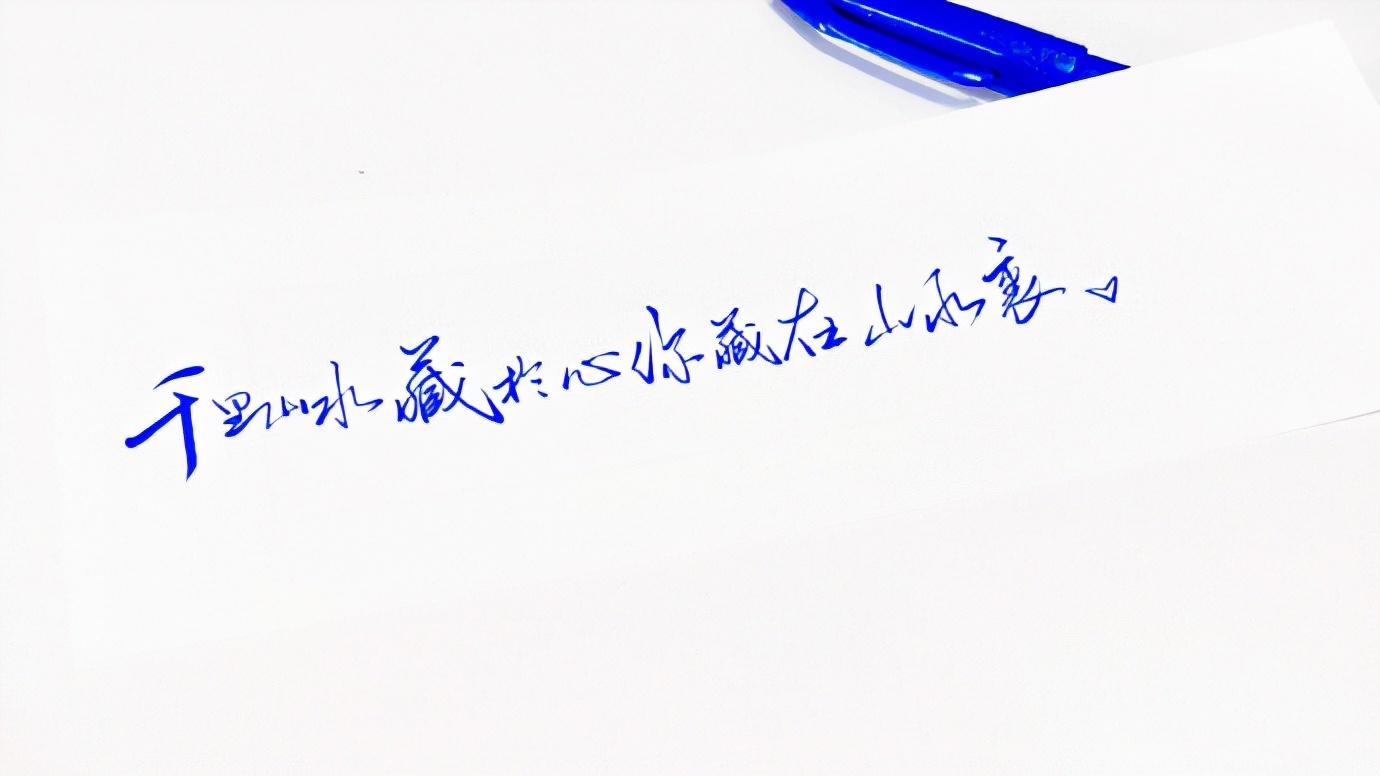 千里山水藏於心你藏在山水裏。